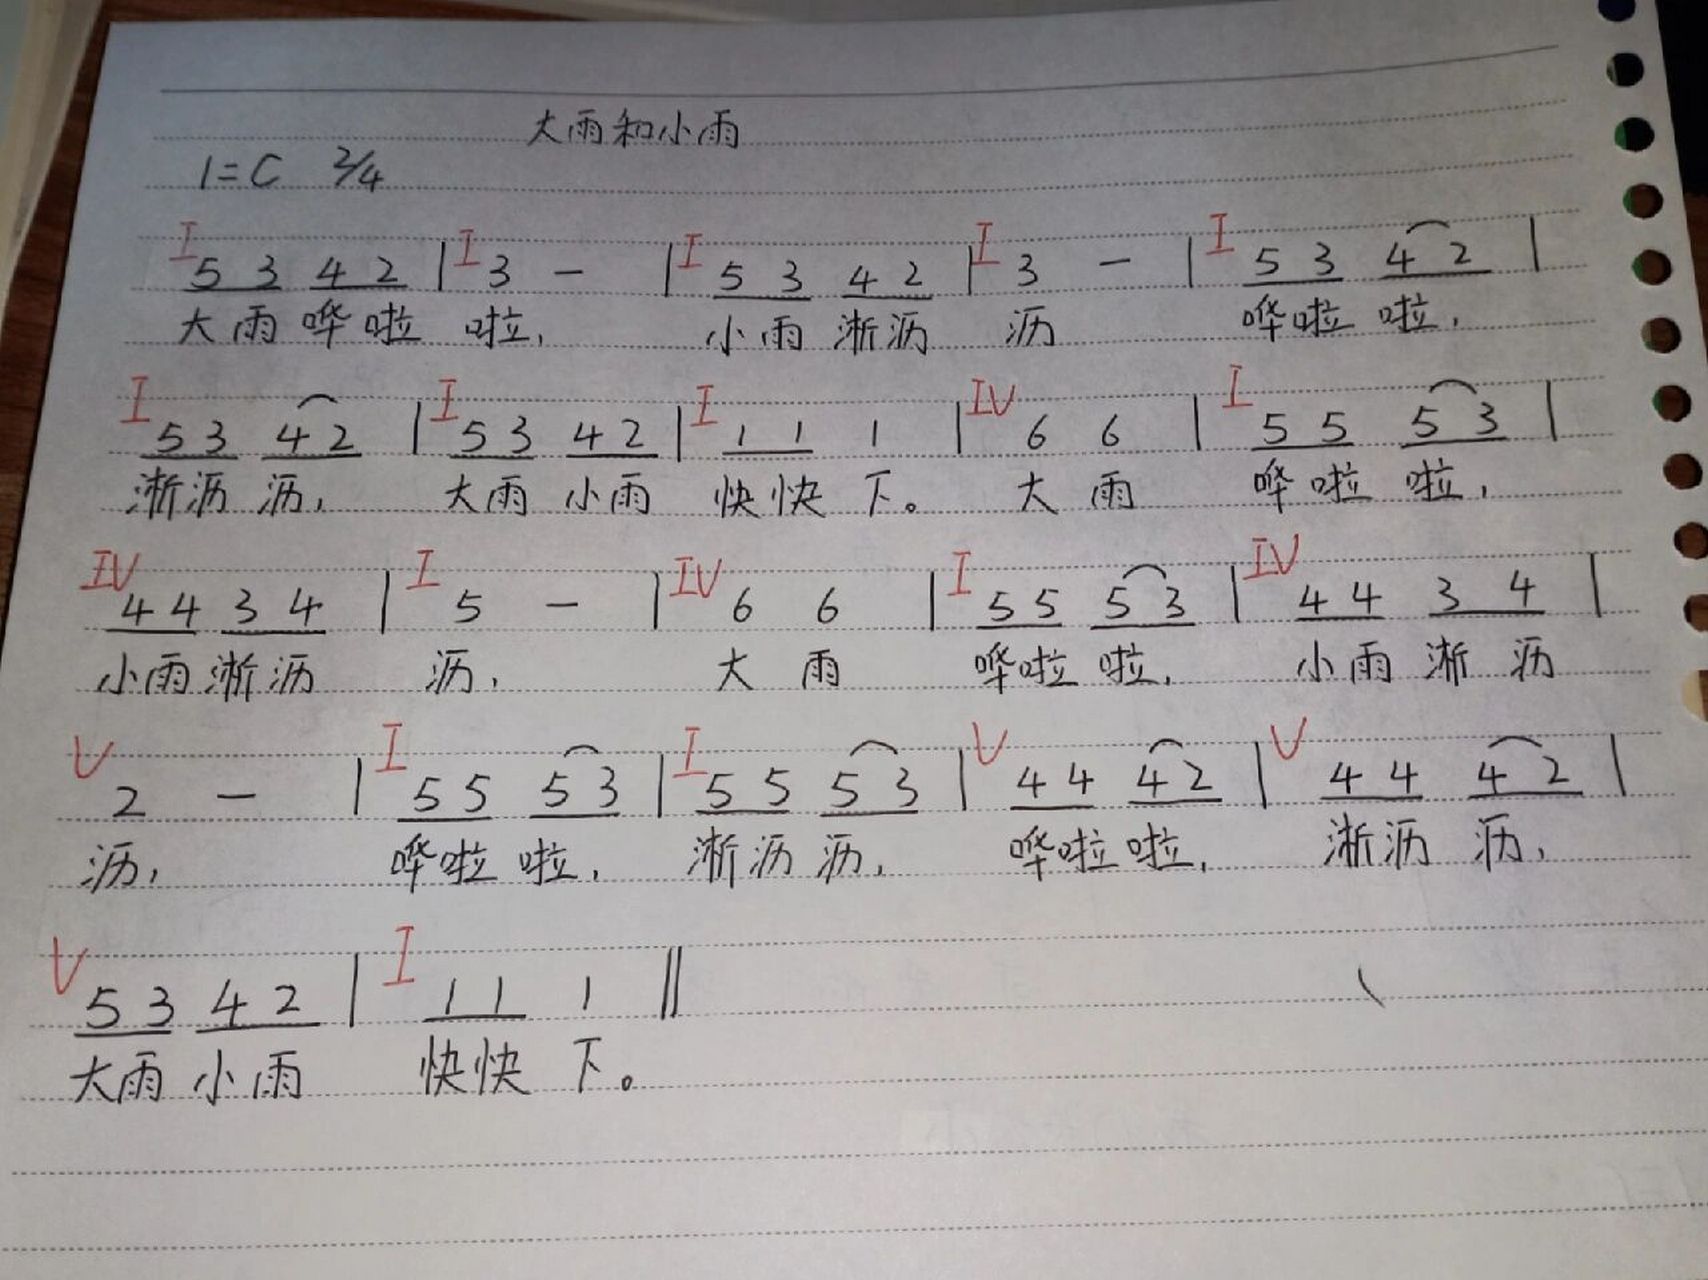 大雨和小雨
1=C 2/4
I I I I I
5 3 4 2 | 3 - | 5 3 4 2 | 3 - | 5 3 4 2 |
大雨哗啦 啦, 小雨淅沥 沥 哗啦啦,
I I I IV I
5 3 4 2 | 5 3 4 2 | 1 1 1 | 6 6 | 5 5 5 3 |
淅沥沥, 大雨小雨 快快下。 大雨 哗啦啦,
IV I IV I IV
4 4 3 4 | 5 - | 6 6 | 5 5 5 3 | 4 4 3 4 |
小雨淅沥 沥, 大雨 哗啦啦, 小雨淅沥
V I I V V
2 - | 5 5 5 3 | 5 5 5 3 | 4 4 4 2 | 4 4 4 2 |
沥, 哗啦啦, 淅沥沥, 哗啦啦, 淅沥沥,
V I
5 3 4 2 | 1 1 1 ‖
大雨小雨 快快下。